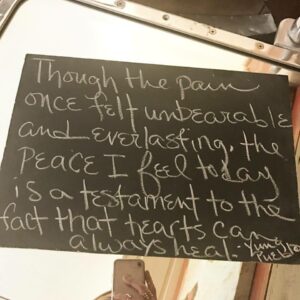 Though the pain
once felt unbearable
and everlasting, the
PEACE I feel today
is a testament to the
fact that hearts can
always heal. Yung
Pueblo